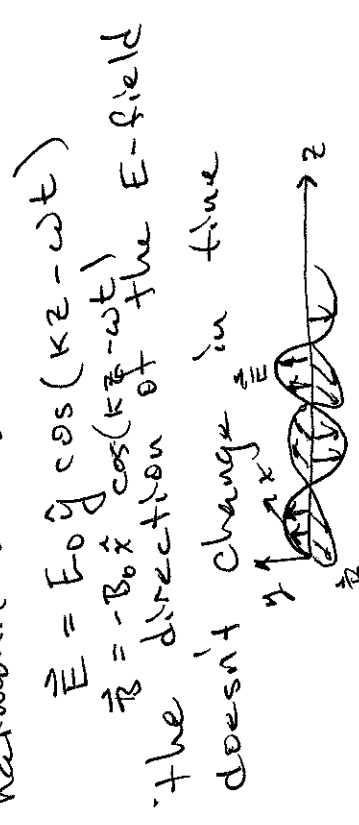 E⃗ = E₀ ŷ cos(kz - ωt)
B⃗ = -B₀ x̂ cos(kz - ωt)
the direction of the E-field
doesn't change in time
y
x
E⃗
z
B⃗